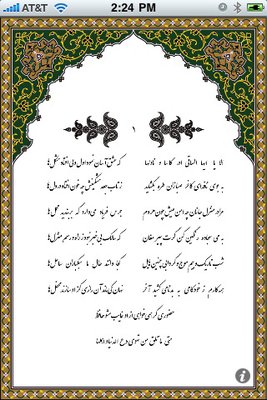 AT&T 2:24 PM
۱
الا یا ایها الساقی ادر کاسا و ناولها که عشق آسان نمود اول ولی افتاد مشکل‌ها
به بوی نافه‌ای کاخر صبا زان طره بگشاید ز تاب جعد مشکینش چه خون افتاد در دل‌ها
مرا در منزل جانان چه امن عیش چون هر دم جرس فریاد می‌دارد که بربندید محمل‌ها
به می سجاده رنگین کن گرت پیر مغان گوید که سالک بی‌خبر نبود ز راه و رسم منزل‌ها
شب تاریک و بیم موج و گردابی چنین هایل کجا دانند حال ما سبکباران ساحل‌ها
همه کارم ز خودکامی به بدنامی کشید آخر نهان کی ماند آن رازی کز او سازند محفل‌ها
حضوری گر همی‌خواهی از او غایب مشو حافظ
متی ما تلق من تهوی دع الدنیا و اهملها